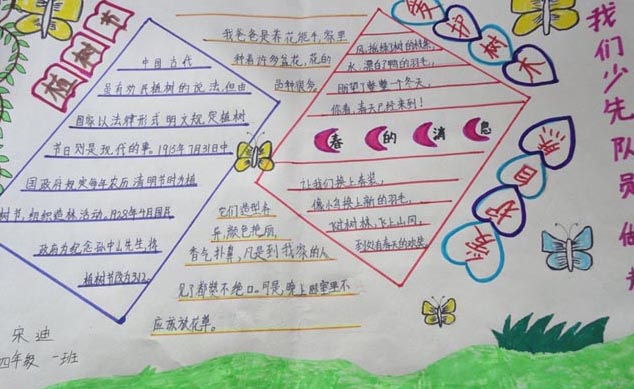 植树节
中国古代
虽有劝民植树的说法,但由
国家以法律形式明文规定植树
节日则是现代的事。1915年7月31日中
国政府规定每年农历清明节时为植
树节,组织造林活动。1928年4月国民
政府为纪念孙中山先生,将
植树节改为3.12。
我爸爸是养花能手,家里
种着许多盆花,花的
品种很多。
它们造型各
异,颜色艳丽,
香气扑鼻,凡是到我家的人
见了都赞不绝口。可是,晚上卧室里不
应该放花草。
爱护树木
水,漂白了鸭的羽毛,
盼望了整整一个冬天,
你看,春天已经来到!
春的消息
让我们换上春装,
像小鸟换上新的羽毛,
飞过树林,飞上山冈,
到处有春天的欢笑。
我们少先队员做
宋迪
四年级 一班